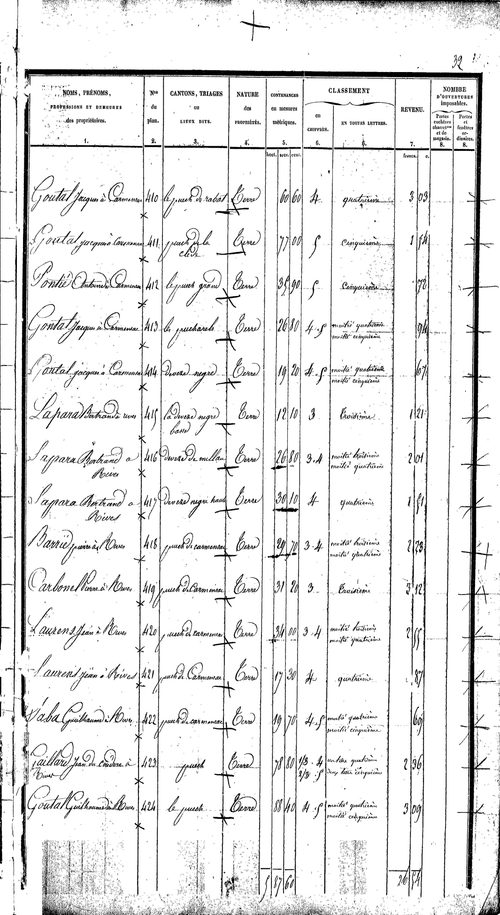 32
NOMS, PRÉNOMS, PROFESSIONS ET DEMEURES des propriétaires. 1.
Nos du plan. 2.
CANTONS, TRIAGES ou LIEUX DITS. 3.
NATURE des 4.
CONTENANCES en mesures métriques. 5.
CLASSEMENT
en 6.
EN TOUTES LETTRES. 6.
REVENU. 7.
NOMBRE D'OUVERTURES imposables.
Portes cochères et de magasin. 8.
Portes et fenêtres ordinaires. 8.
hect. ares. cent. francs. c.
Goutal Jacques à Carmenac 410 le puech de rabat Terre 60 60 4 quatrième 3 03
Goutal Jacques à Carmenac 411 puech de la Terre 77 00 5 cinquième 1 54
Antoine à Carmenac 412 le puech grand Terre 35 90 5 cinquième 72
Goutal Jacques à Carmenac 413 Terre 26 80 4-5 moitié quatrième moitié cinquième 94
Goutal Jacques à Carmenac 414 devese negre Terre 19 20 4-5 moitié quatrième moitié cinquième 67
Lapara Bertrand à Rives 415 la devese negre basse Terre 12 10 3 troisième 1 21
Lapara Bertrand à Rives 416 devese de Terre 26 80 3-4 moitié troisième moitié quatrième 2 01
Lapara Bertrand à Rives 417 devese negre haute Terre 30 10 4 quatrième 1 51
pierre à Rives 418 puech de carmenac Terre 29 70 3-4 moitié troisième moitié quatrième 2 23
Carbonel Pierre à Rives 419 puech de Carmenac Terre 31 20 3 troisième 3 12
Laurens Jean à Rives 420 puech de carmenac Terre 34 00 3-4 moitié troisième moitié quatrième 2 55
Laurens Jean à Rives 421 puech de Carmenac Terre 17 30 4 quatrième 87
Guillaume à Rives 422 puech de carmenac Terre 19 70 4-5 moitié quatrième moitié cinquième 69
Gaillard Jean à Rives 423 puech Terre 78 80 1/3-4 2/3-5 un tiers quatrième deux tiers cinquième 2 36
Goutal Guillaume à Rives 424 le puech Terre 88 40 4-5 moitié quatrième moitié cinquième 3 09
5 87 60 26 54